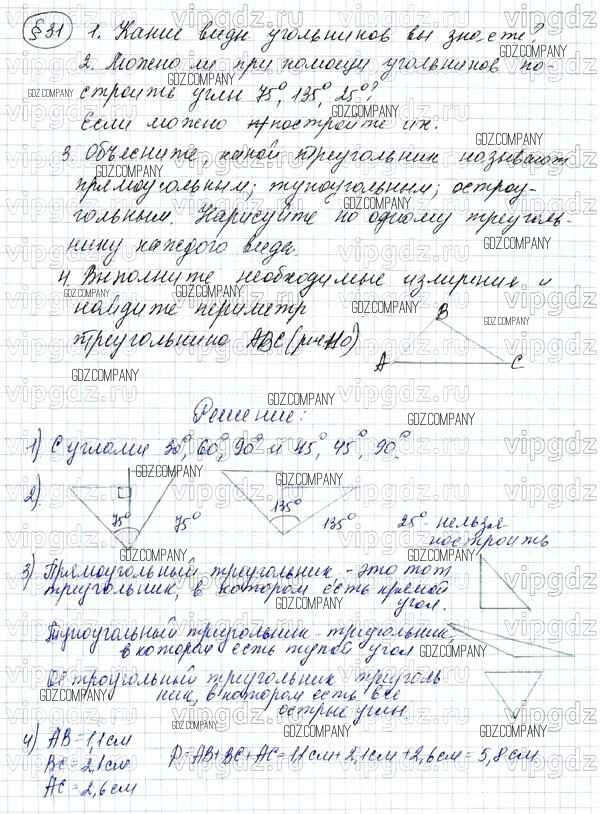 § 31 1. Какие виды угольников вы знаете?
2. Можно ли при помощи угольников по-
строить углы 75°, 135°, 25°?
Если можно постройте их.
3. Объясните, какой треугольник называют
прямоугольным; тупоугольным; остроу-
гольным. Нарисуйте по одному треуголь-
нику каждого вида.
4. Выполните необходимые измерения и
найдите периметр
треугольника ABC (рис 110)
B
A
C
Решение:
1) С углами 30°, 60°, 90° и 45°, 45°, 90°.
2).
75°
75°
135°
135°
25° - нельзя
построить
3) Прямоугольный треугольник - это тот
триугольник, в котором есть прямой
угол.
Тупоугольный триугольник - триугольник,
в котором есть тупой угол
Остроугольный триугольник триуголь
ник, в котором есть все
острые углы.
4) AB = 1,1 см
BC = 2,1 см
AC = 2,6 см
P = AB + BC + AC = 1,1 см + 2,1 см + 2,6 см = 5,8 см
GDZ.COMPANY
vipgdz.ru